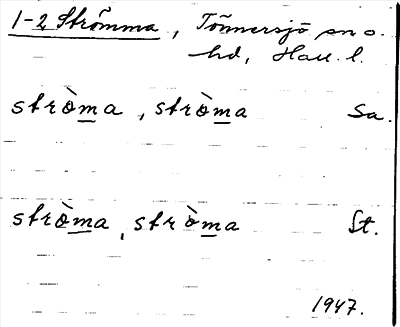 1-2 Strömma, Tönnersjö sn o.
hd, Hall. l.
stròma, stròma Sa.
stròma, stròma St.
1947.